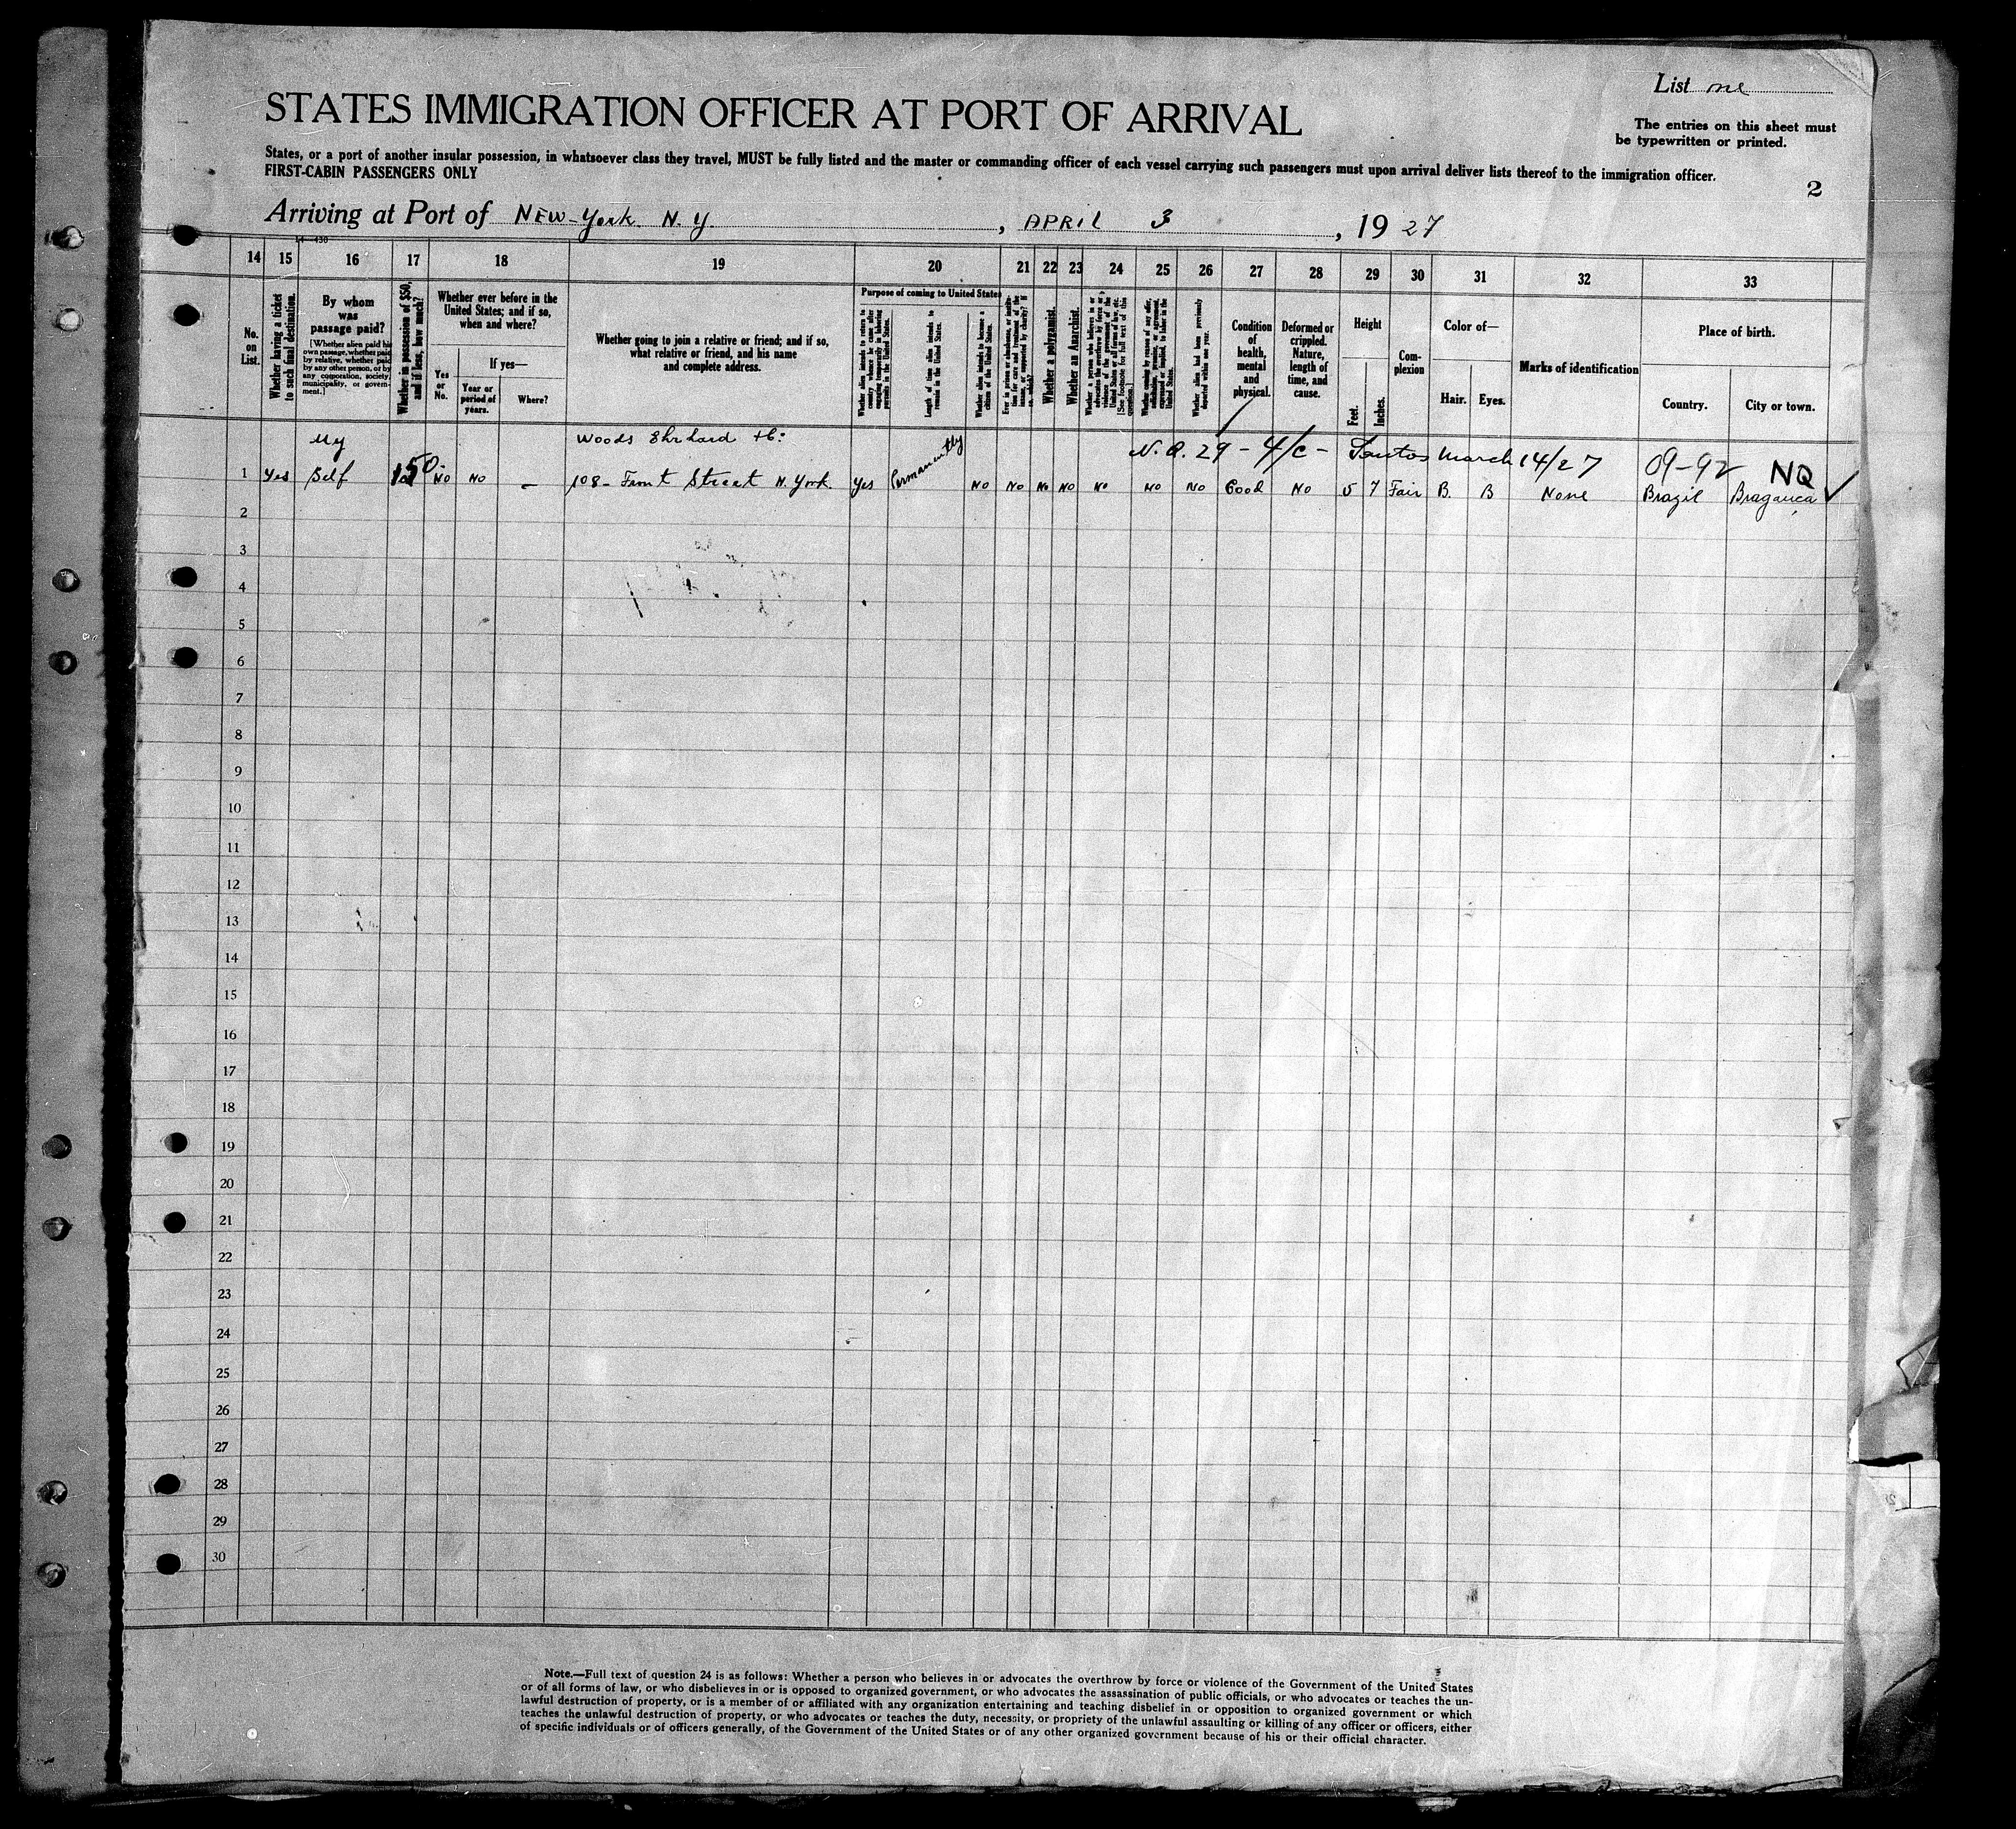 List one
STATES IMMIGRATION OFFICER AT PORT OF ARRIVAL
The entries on this sheet must
be typewritten or printed.
States, or a port of another insular possession, in whatsoever class they travel, MUST be fully listed and the master or commanding officer of each vessel carrying such passengers must upon arrival deliver lists thereof to the immigration officer.
FIRST-CABIN PASSENGERS ONLY
2
Arriving at Port of New-York. N. Y. , APRIL 3 , 19 27
14 15 16 17 18 19 20 21 22 23 24 25 26 27 28 29 30 31 32 33
No.
on
List.
Whether having a ticket
to such final destination.
By whom
was
passage paid?
[Whether alien paid his
own passage, whether paid
by relative, whether paid
by any other person, or by
any corporation, society,
municipality, or govern-
ment.]
Whether in possession of $50,
and if less, how much?
Whether ever before in the
United States; and if so,
when and where?
Yes
or
No.
If yes—
Year or
period of
years.
Where?
Whether going to join a relative or friend; and if so,
what relative or friend, and his name
and complete address.
Purpose of coming to United States
Whether alien intends to return to
country whence he came after
engaging temporarily in laboring
pursuits in the United States.
Length of time alien intends to
remain in the United States.
Whether alien intends to become a
citizen of the United States.
Whether a polygamist.
Whether an Anarchist.
Whether alien had been previously
deported within one year.
Condition
of
health,
mental
and
physical.
Deformed or
crippled.
Nature,
length of
time, and
cause.
Height
Feet.
Inches.
Com-
plexion
Color of—
Hair.
Eyes.
Marks of identification
Place of birth.
Country.
City or town.
My Woods Ehrhard + C: N. Q. 29 - 4/c - Santos March 14/27 09-92 NQ
1 Yes Self 150 No No — 108- Front Street N. York. Yes Permanently No No No No No No No Good No 5 7 Fair B. B None Brazil Bragança
2
3
4
5
6
7
8
9
10
11
12
13
14
15
16
17
18
19
20
21
22
23
24
25
26
27
28
29
30
Note.—Full text of question 24 is as follows: Whether a person who believes in or advocates the overthrow by force or violence of the Government of the United States
or of all forms of law, or who disbelieves in or is opposed to organized government, or who advocates the assassination of public officials, or who advocates or teaches the un-
lawful destruction of property, or is a member of or affiliated with any organization entertaining and teaching disbelief in or opposition to organized government or which
teaches the unlawful destruction of property, or who advocates or teaches the duty, necessity, or propriety of the unlawful assaulting or killing of any officer or officers, either
of specific individuals or of officers generally, of the Government of the United States or of any other organized government because of his or their official character.